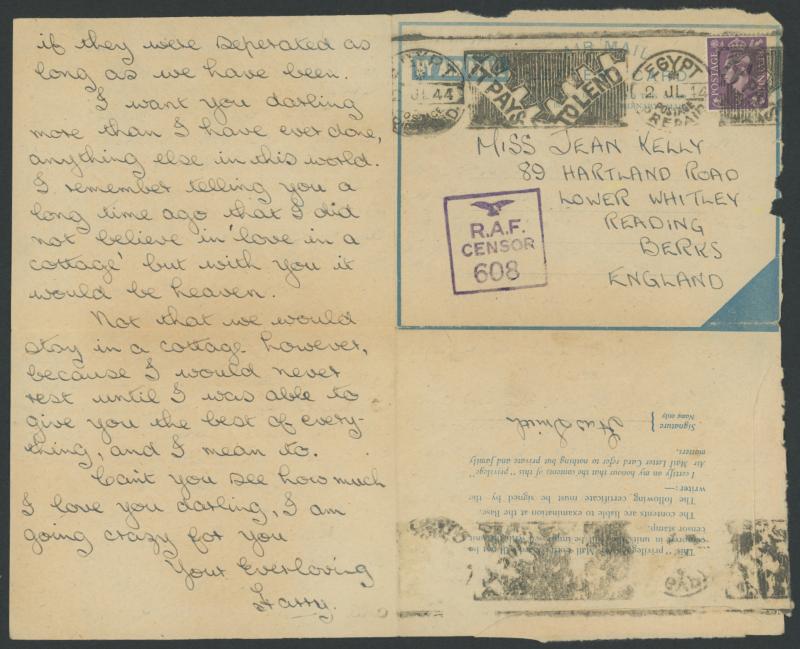 if they were seperated as
long as we have been.
I want you darling
more than I have ever done,
anything else in this world.
I remember telling you a
long time ago that I did
not believe in 'love in a
cottage' but with you it
would be heaven.
Not that we would
stay in a cottage however,
because I would never
rest until I was able to
give you the best of every-
thing, and I mean to.
Can't you see how much
I love you darling, I am
going crazy for you
Your Everloving
Harry.
AIR MAIL
LETTER CARD
IT PAYS
TO LEND
EGYPT
2 JL 44
POSTAGE
PREPAID
EGYPT
2 JL 44
POSTAGE
PREPAID
POSTAGE
MISS JEAN KELLY
89 HARTLAND ROAD
LOWER WHITLEY
READING
BERKS
ENGLAND
R.A.F.
CENSOR
608
This "privilege" Air Mail
censor stamp.
The contents are liable to examination at the Base.
The following certificate must be signed by the
writer:—
I certify on my honour that the contents of this "privilege"
Air Mail Letter Card refer to nothing but private and family
matters.
Signature
Name only